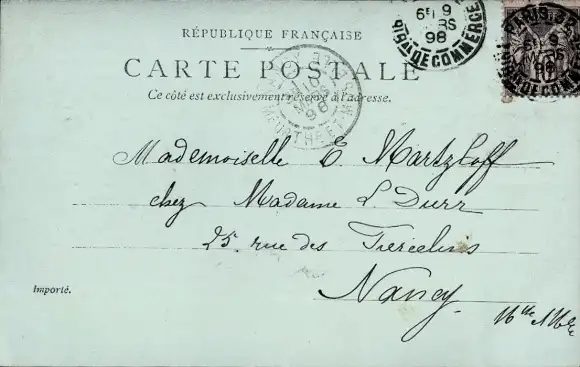 RÉPUBLIQUE FRANÇAISE
CARTE POSTALE
Ce côté est exclusivement réservé à l'adresse.
6E 9
MARS
98
DE COMMERCE
PARIS
DE COMMERCE
MEURTHE-ET-M
Mademoiselle E. Martzloff
chez Madame L Durr
25. rue des Tiercelins
Nancy.
Mthe & Mlle
Importé.